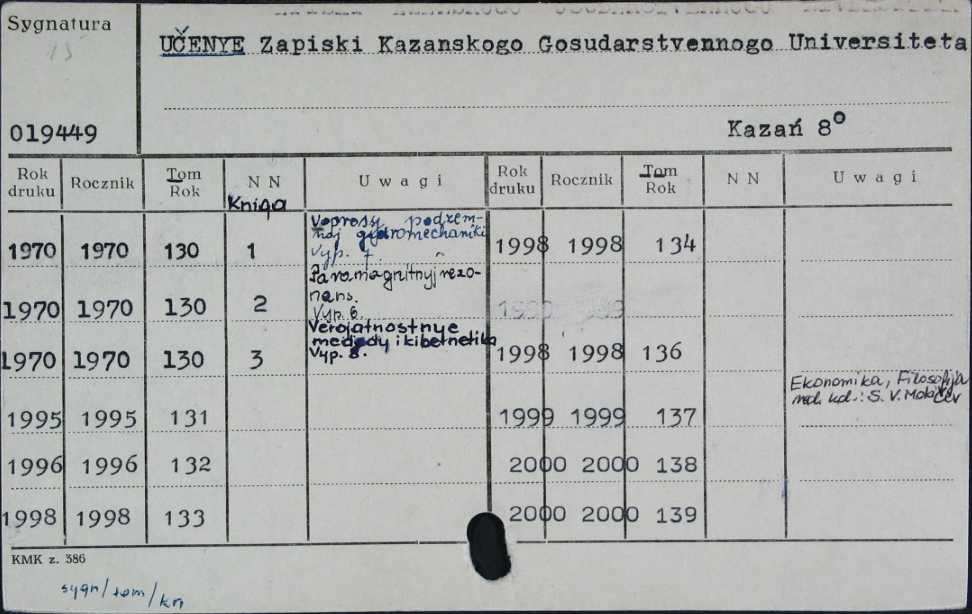 Sygnatura
15
UČENYE Zapiski Kazanskogo Gosudarstvennogo Universiteta
019449
Kazań 8°
Rok druku Rocznik Tom Rok N N U w a g i Rok druku Rocznik Tom Rok N N U w a g i
Kniga
1970 1970 130 1 Voprosy podzem-
noj gidromechaniki
Vyp. 7
1998 1998 134
1970 1970 130 2 Paramagnitnyj rezo-
nans.
Vyp. 6.
1970 1970 130 3 Verojatnostnye
metody i kibernetika
Vyp. 8.
1998 1998 136
1995 1995 131
1999 1999 137 Ekonomika, Filosofija
red. kol.: S. V.
1996 1996 132 2000 2000 138
1998 1998 133 2000 2000 139
KMK z. 386
sygn/tom/kn